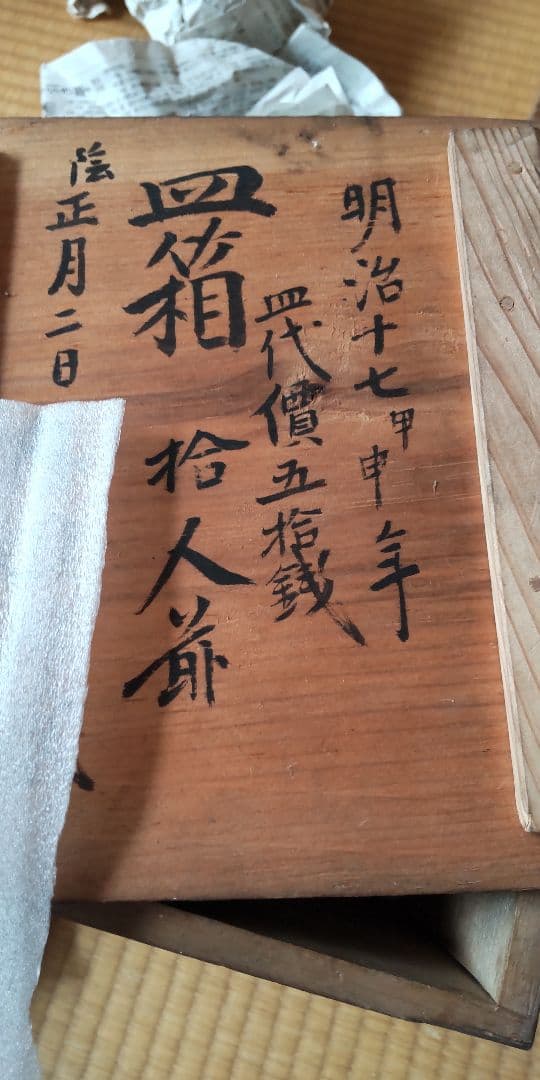 明治十七甲申年
皿代價五拾錢
皿箱 拾人前
陰正月二日